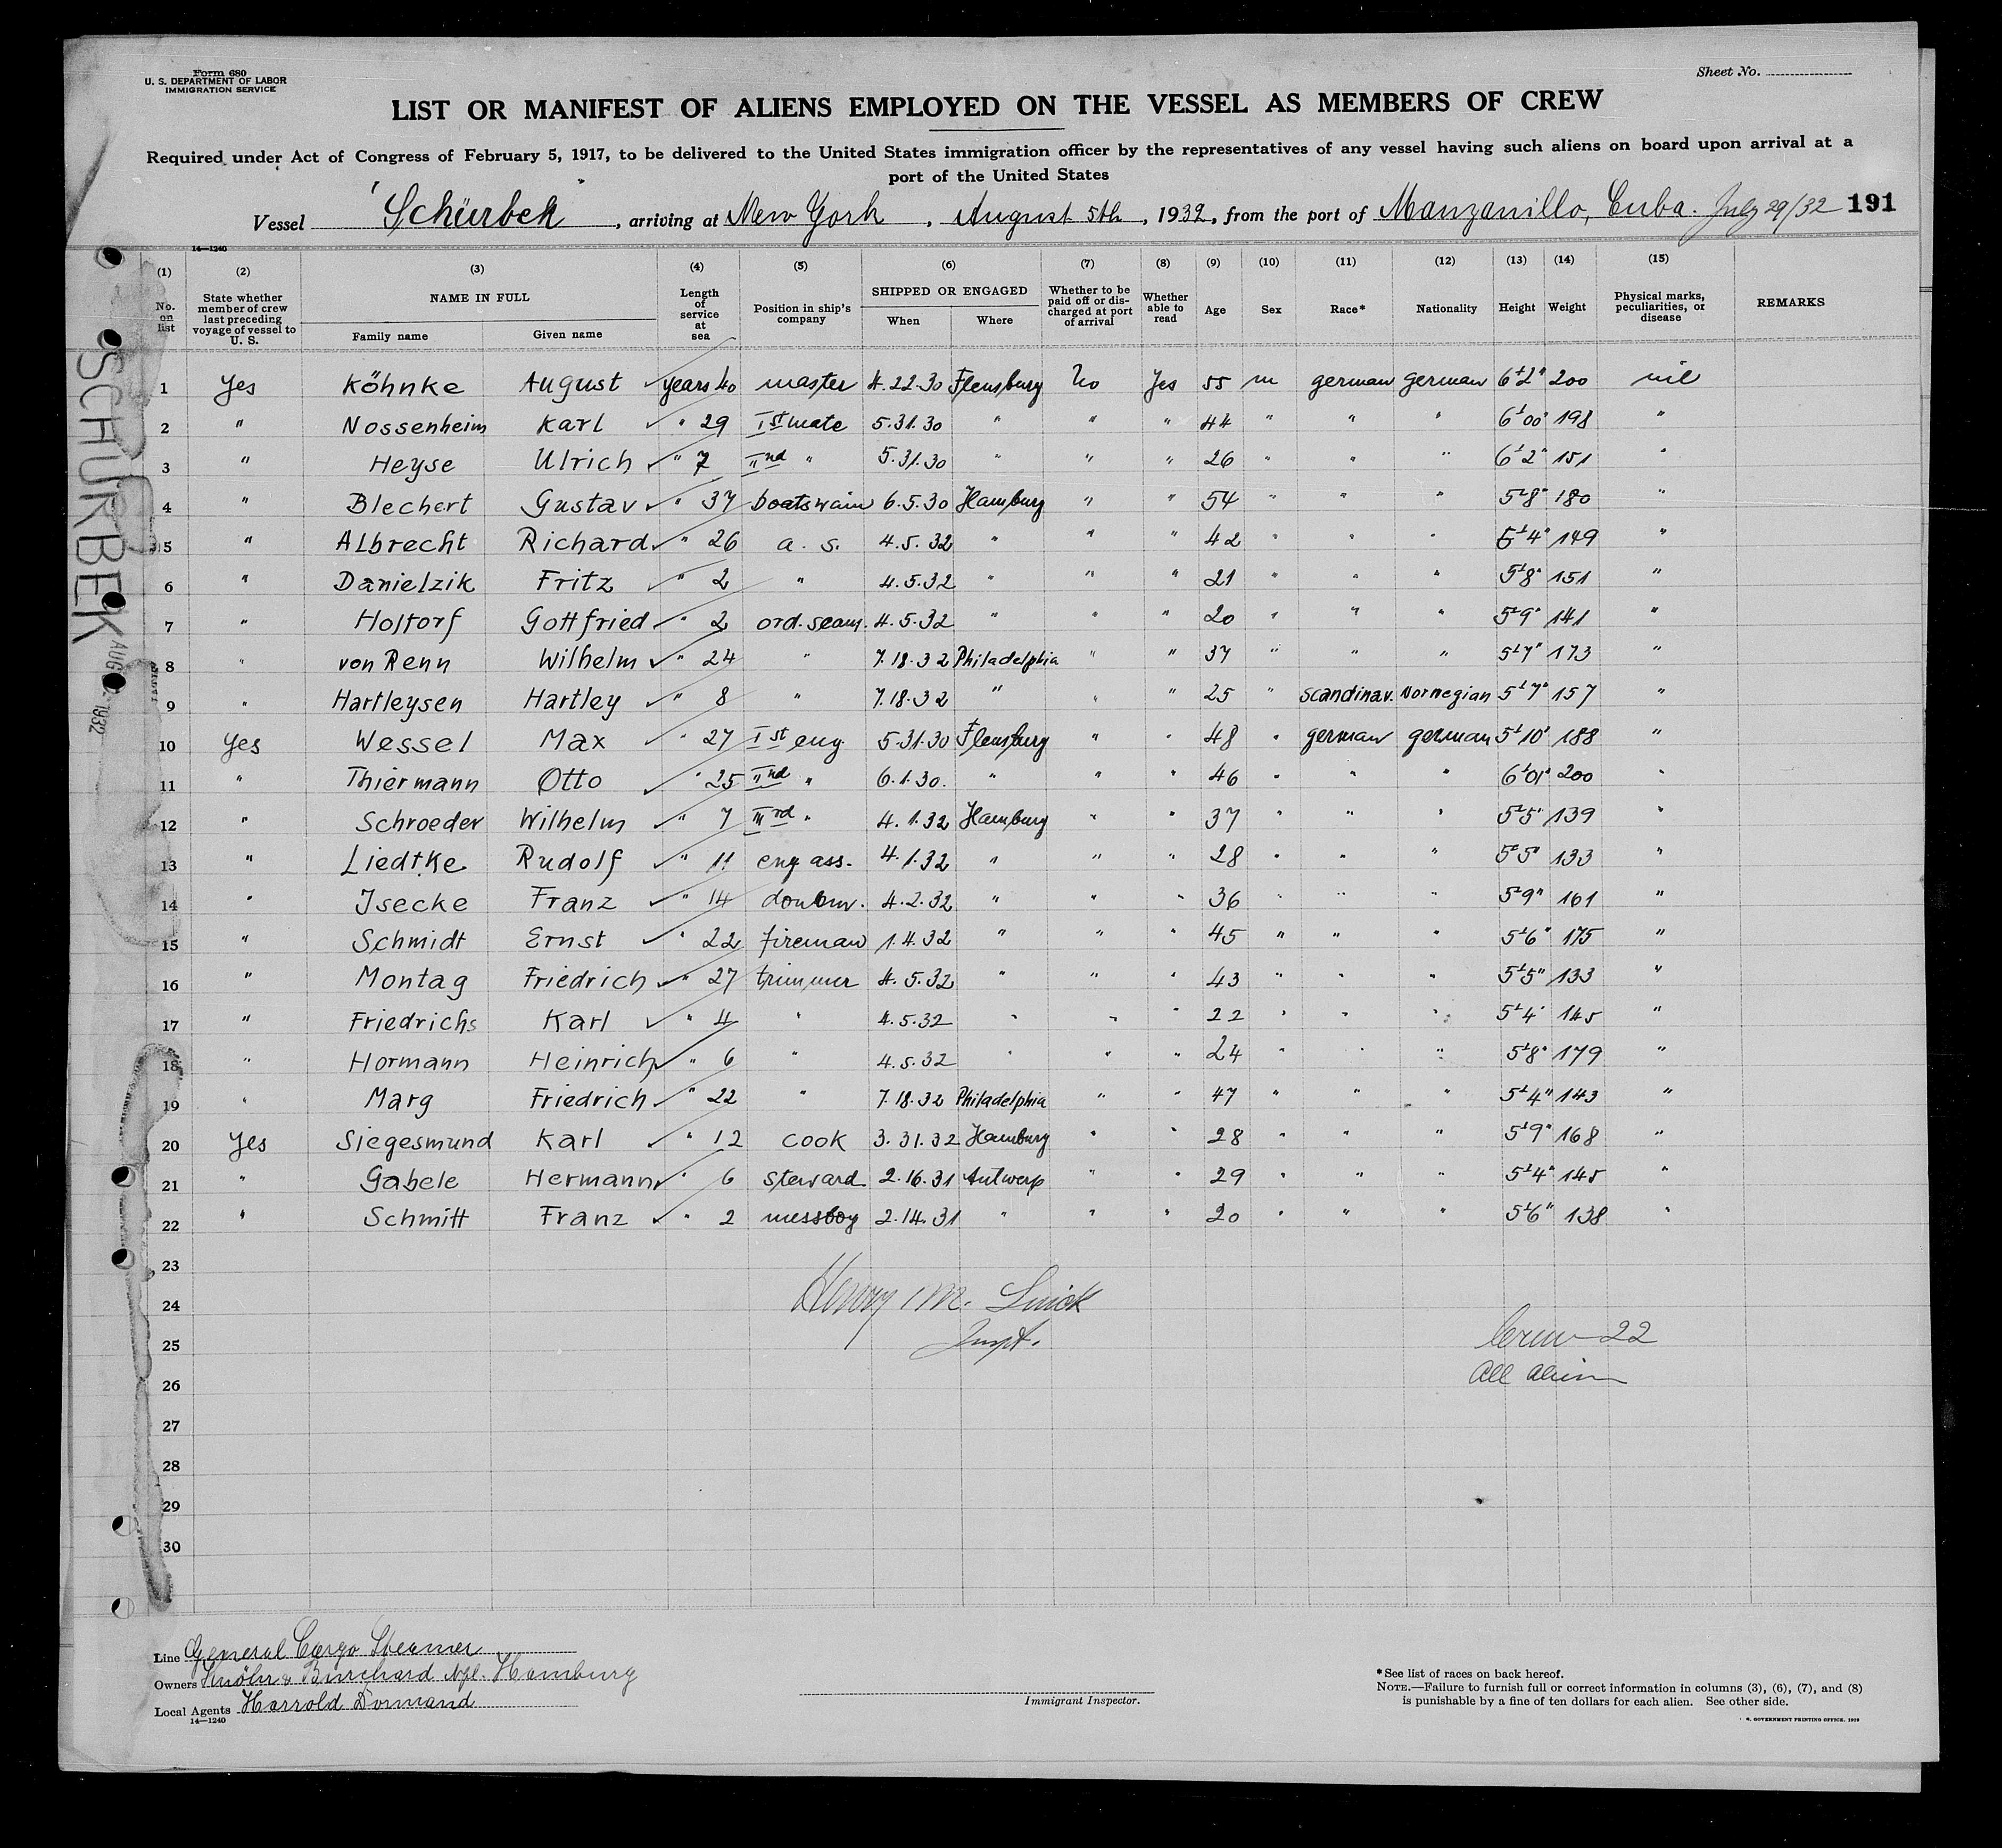 Form 680
U. S. DEPARTMENT OF LABOR
IMMIGRATION SERVICE
Sheet No.
LIST OR MANIFEST OF ALIENS EMPLOYED ON THE VESSEL AS MEMBERS OF CREW
Required under Act of Congress of February 5, 1917, to be delivered to the United States immigration officer by the representatives of any vessel having such aliens on board upon arrival at a
port of the United States
Vessel "Schürbek", arriving at New York, August 5th, 1932, from the port of Manzanillo, Cuba. July 29/32 191
14—1240
(1) (2) (3) (4) (5) (6) (7) (8) (9) (10) (11) (12) (13) (14) (15)
No. on list State whether member of crew last preceding voyage of vessel to U. S. NAME IN FULL Family name Given name Length of service at sea Position in ship's company SHIPPED OR ENGAGED When Where Whether to be paid off or discharged at port of arrival Whether able to read Age Sex Race* Nationality Height Weight Physical marks, peculiarities, or disease REMARKS
1 Yes Köhnke August years 40 master 4.22.30 Flensburg No Yes 55 m german german 6'2" 200 nil
2 " Nossenheim Karl " 29 Ist mate 5.31.30 " " " 44 " " " 6'00" 198 "
3 " Heyse Ulrich " 7 IInd " 5.31.30 " " " 26 " " " 6'2" 151 "
4 " Blechert Gustav " 37 boatswain 6.5.30 Hamburg " " 54 " " " 5'8" 180 "
5 " Albrecht Richard " 26 a. s. 4.5.32 " " " 42 " " " 5'4" 149 "
6 " Danielzik Fritz " 2 " 4.5.32 " " " 21 " " " 5'8" 151 "
7 " Holtorf Gottfried " 2 ord. seam. 4.5.32 " " " 20 " " " 5'9" 141 "
8 " von Renn Wilhelm " 24 " 7.18.32 Philadelphia " " 37 " " " 5'7" 173 "
9 " Hartleysen Hartley " 8 " 7.18.32 " " " 25 " scandinav. Norwegian 5'7" 157 "
10 Yes Wessel Max " 27 Ist eng 5.31.30 Flensburg " " 48 " german german 5'10" 188 "
11 " Thiermann Otto " 25 IInd " 6.1.30. " " " 46 " " " 6'01" 200 "
12 " Schroeder Wilhelm " 7 IIIrd " 4.1.32 Hamburg " " 37 " " " 5'5" 139 "
13 " Liedtke Rudolf " 11 eng ass. 4.1.32 " " " 28 " " " 5'5" 133 "
14 " Isecke Franz " 14 4.2.32 " " " 36 " " " 5'9" 161 "
15 " Schmidt Ernst " 22 fireman 1.4.32 " " " 45 " " " 5'6" 175 "
16 " Montag Friedrich " 27 trimmer 4.5.32 " " " 43 " " " 5'5" 133 "
17 " Friedrichs Karl " 4 " 4.5.32 " " " 22 " " " 5'4" 145 "
18 " Hormann Heinrich " 6 " 4.5.32 " " " 24 " " " 5'8" 179 "
19 " Marg Friedrich " 22 " 7.18.32 Philadelphia " " 47 " " " 5'4" 143 "
20 Yes Siegesmund Karl " 12 cook 3.31.32 Hamburg " " 28 " " " 5'9" 168 "
21 " Gabele Hermann " 6 steward 2.16.31 Antwerp " " 29 " " " 5'4" 145 "
22 " Schmitt Franz " 2 messboy 2.14.31 " " " 20 " " " 5'6" 138 "
23
24 Henry M.
25 Inspt. Crew 22
26 All alien
27
28
29
30
SCHURBEK
AUG 1932
Line General Cargo Steamer
Owners Knöhr & Burchard Nfl. Hamburg
Local Agents Harrold Dormand
14—1240
Immigrant Inspector.
*See list of races on back hereof.
NOTE.—Failure to furnish full or correct information in columns (3), (6), (7), and (8)
is punishable by a fine of ten dollars for each alien. See other side.
GOVERNMENT PRINTING OFFICE.